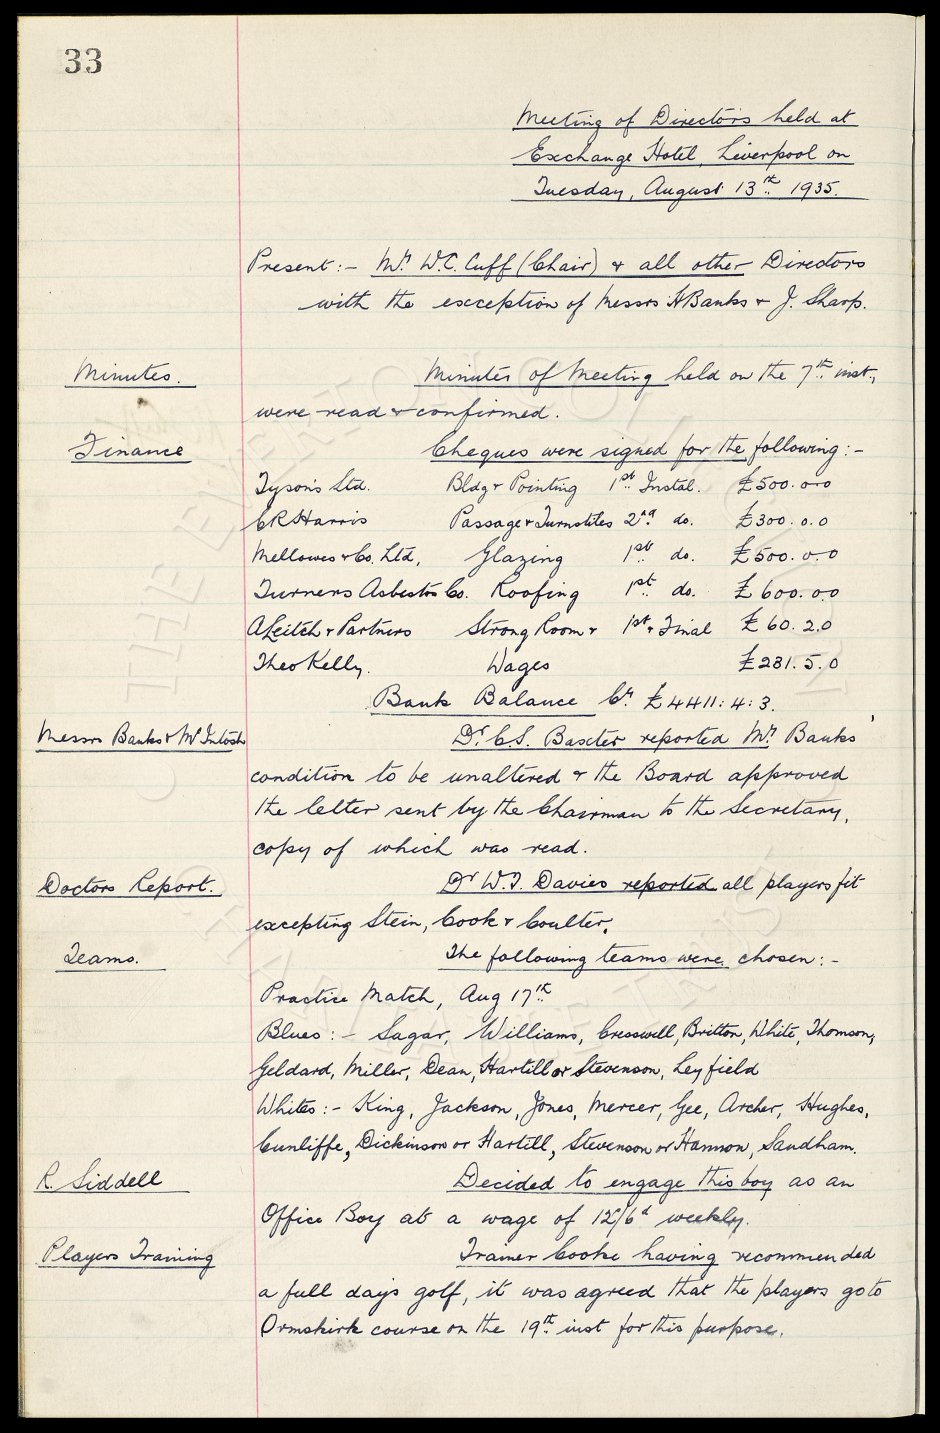 33
Meeting of Directors held at
Exchange Hotel, Liverpool on
Tuesday, August 13th 1935.
Present:- Mr. W.C. Cuff (Chair) & all other Directors
with the exception of Messrs A Banks & J. Sharp.
Minutes. Minutes of Meeting held on the 7th inst,
were read & confirmed.
Finance Cheques were signed for the following:-
Tysons Ltd. Bldg & Pointing 1st Instal. £500.0.0
C R Harris Passage & Turnstiles 2nd do. £300.0.0
Mellowes & Co. Ltd, Glazing 1st do. £500.0.0
Turners Asbestos Co. Roofing 1st do. £600.0.0
A Leitch & Partners Strong Room & 1st & Final £60.2.0
Theo Kelly. Wages £281.5.0
Bank Balance Cr £4411:4:3.
Messrs Banks & McIntosh Dr. C.S. Baxter reported Mr. Banks'
condition to be unaltered & the Board approved
the letter sent by the Chairman to the Secretary,
copy of which was read.
Doctors Report. Dr W.J. Davies reported all players fit
excepting Stein, Cook & Coulter.
Teams. The following teams were chosen:-
Practice Match, Aug 17th
Blues:- Sagar, Williams, Cresswell, Britton, White, Thomson,
Geldard, Miller, Dean, Hartill or Stevenson, Leyfield
Whites:- King, Jackson, Jones, Mercer, Gee, Archer, Hughes,
Cunliffe, Dickinson or Hartill, Stevenson or Hannon, Sandham.
R. Liddell Decided to engage this boy as an
Office Boy at a wage of 12/6d weekly.
Players Training Trainer Cooke having recommended
a full days golf, it was agreed that the players go to
Ormskirk course on the 19th inst for this purpose.